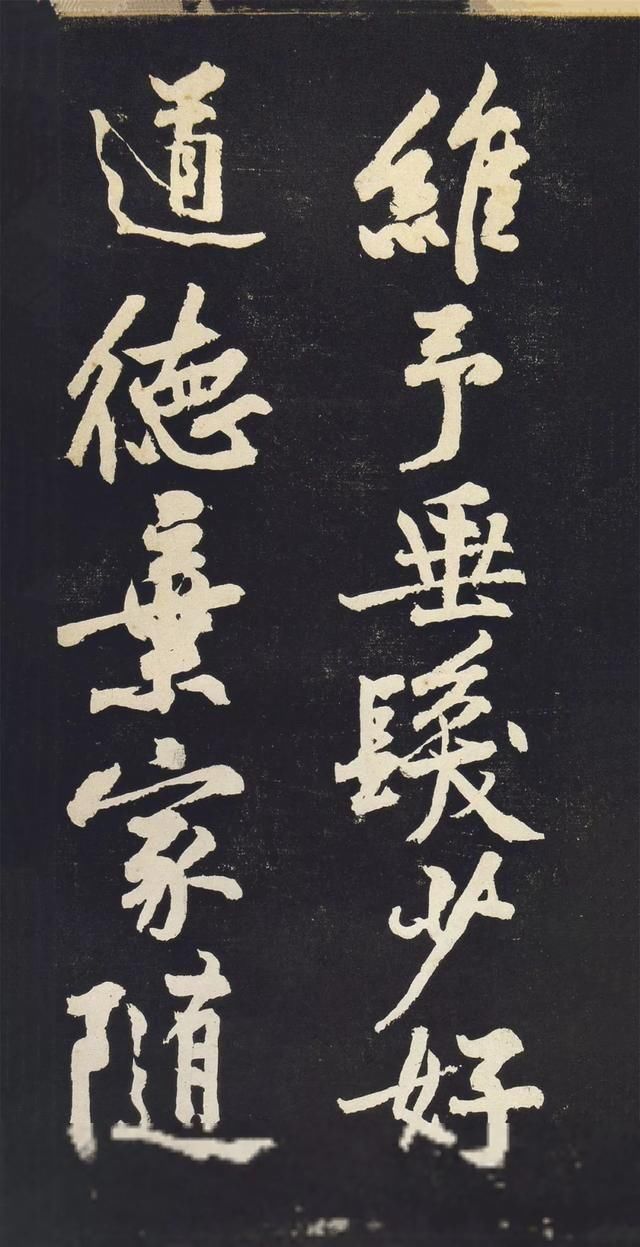 維予垂髮少好
道德棄家隨